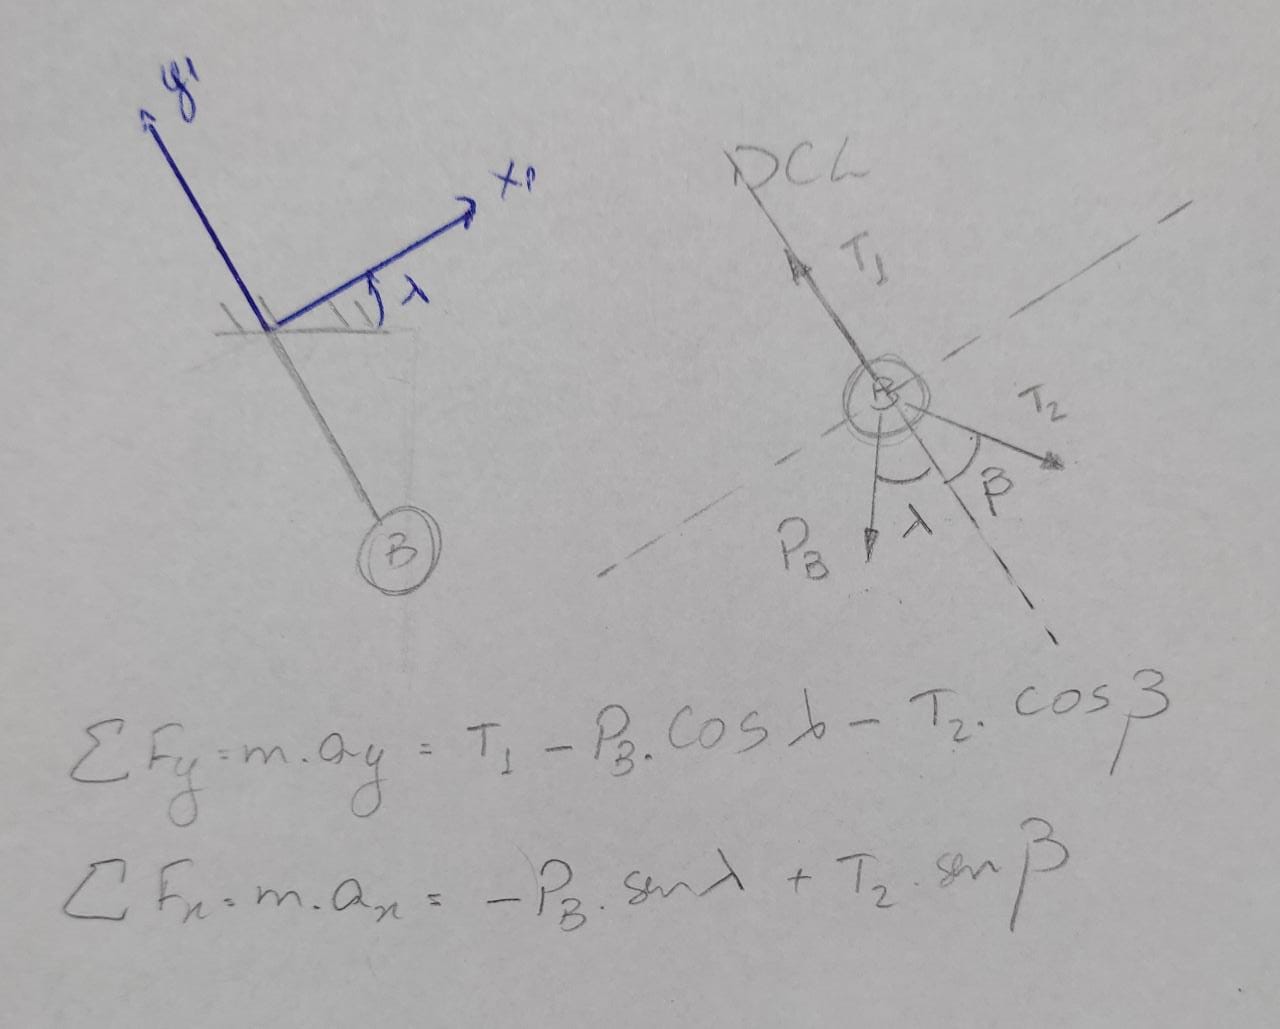 y'
x'
λ
B
DCL
T₁
B
T₂
β
λ
P_B
Σ Fy = m.ay = T₁ - P_B. cos λ - T₂. cos β
Σ Fx = m.ax = -P_B. sen λ + T₂. sen β